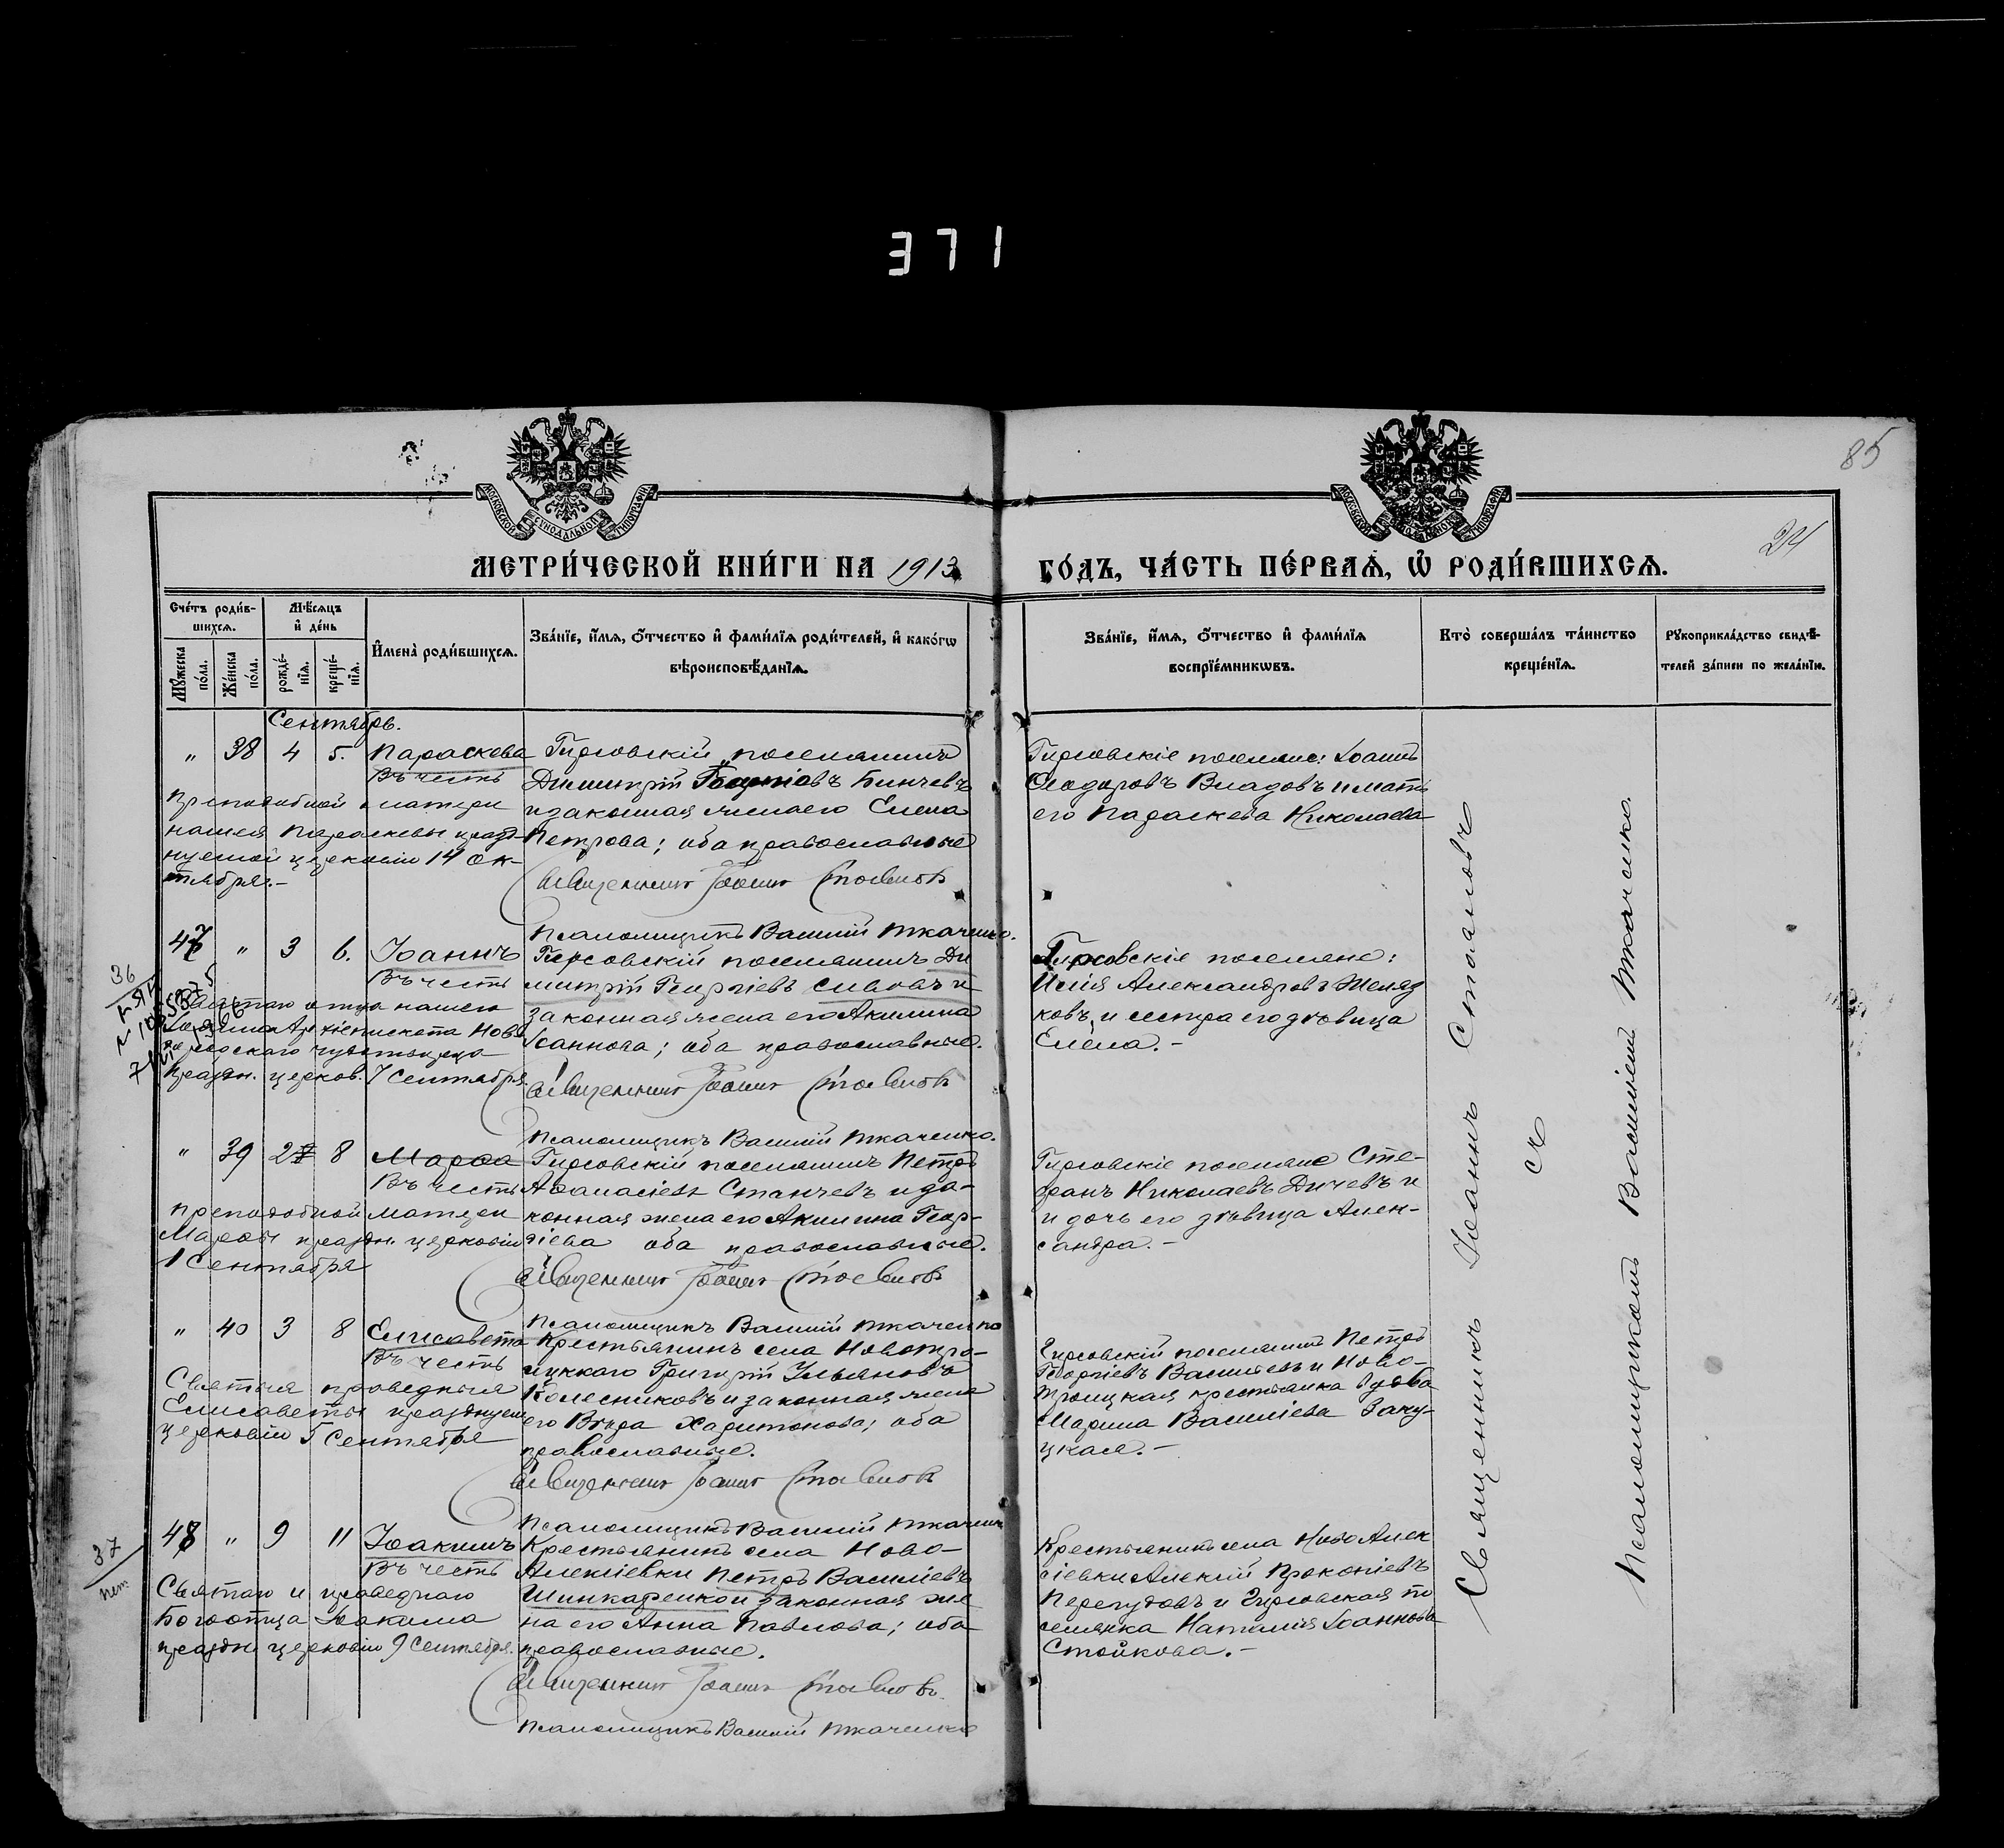 371
85
24
МОСКОВСКОЙ СѴНОДАЛЬНОЙ ТИПОГРАФІИ
МОСКОВСКОЙ СѴНОДАЛЬНОЙ ТИПОГРАФІИ
МЕТРИ́ЧЕСКОЙ КНИ́ГИ НА 1913
ГО́ДЪ, ЧА́СТЬ ПЕ́РВАѦ, Ѡ҆ РОДИ́ВШИХСѦ.
Сче́тъ роди́в-
шихсѧ.
Мѣ́сѧцъ
и҆ де́нь
Мꙋ́жеска по́ла.
Же́нска по́ла.
рожде́-
нїѧ.
креще́-
нїѧ.
И҆мена̀ роди́вшихсѧ.
Зва́нїе, и҆́мѧ, ѻ҆́тчество и҆ фами́лїѧ роди́телей, и҆ како́гѡ
вѣроисповѣ́данїѧ.
Зва́нїе, и҆́мѧ, ѻ҆́тчество и҆ фами́лїѧ
воспрїе́мникѡвъ.
Кто̀ соверша́лъ та́инство
креще́нїѧ.
Рꙋкоприкла́дство свидѣ́-
телей за́писи по жела́нїю.
Сентябрь.
" 38 4 5. Параскева
Въ честь
преподобной матери
нашея Параскевы празд-
нуемой церковію 14 Ок-
тября.-
Гирсовскій поселянинъ
Димитрій Георгіевъ Бинчевъ
и законная жена его Елена
Петрова; оба православные
Священникъ Іоаннъ Стоиловъ
Псаломщикъ Василій Ткаченко.
Гирсовскіе поселяне: Іоаннъ
Ѳеодоровъ Владовъ и мать
его Параскева Николаева
47 " 3 6. Іоаннъ
Въ честь
Святаго отца нашего
Іоанна Архіепископа Нов-
городскаго чудотворца
праздн. церков. 7 Сентября.
36
Гирсовскій поселянинъ Ди
митрій Георгіевъ Сивовъ и
законная жена его Акилина
Іоаннова; оба православные.
Священникъ Іоаннъ Стоиловъ
Псаломщикъ Василій Ткаченко.
Гирсовскіе поселяне:
Илія Александровъ Желяз
ковъ и сестра его дѣвица
Елена.-
" 39 27 8 Марѳа
Въ честь
преподобной матери
Марѳы праздн. церковію
1 Сентября
Гирсовскій поселянинъ Петръ
Аѳанасіевъ Станчевъ и за-
конная жена его Акилина Геор-
гіева оба православные.
Священникъ Іоаннъ Стоиловъ
Псаломщикъ Василій Ткаченко
Гирсовскіе поселяне Сте-
фанъ Николаевъ Дичевъ и
и дочь его дѣвица Алек-
сандра.-
" 40 3 8 Елисавета
Въ честь
Святыя праведныя
Елисаветы празднуем
церковію 5 Сентября
Крестьянинъ села Новотро-
ицкаго Григорій Ульяновъ
Колесниковъ и законная жена
его Вѣра Харитонова; оба
православные.
Священникъ Іоаннъ Стоиловъ
Псаломщикъ Василій Ткаченко
Гирсовскій поселянинъ Петръ
Георгіевъ Васильевъ и Ново-
троицкая крестьянка вдова
Марина Василіева Заку-
цкая.-
48 " 9 11 Іоакимъ
Въ честь
Святаго и праведнаго
Богоотца Іоакима
праздн. церковію 9 Сентября.
37
Крестьянинъ села Ново-
Алексіевки Петръ Василіевъ
Шинкаренко и законная же
на его Анна Павлова; оба
православные.
Священникъ Іоаннъ Стоиловъ.
Псаломщикъ Василій Ткаченко
Крестьянинъ села НовоАлек
сіевки Алексій Прокопіевъ
Перегудовъ и Гирсовская по
селянка Наталія Іоаннова
Стойкова.-
Священникъ Іоаннъ Стоиловъ
съ
Псаломщикомъ Василіемъ Ткаченко.